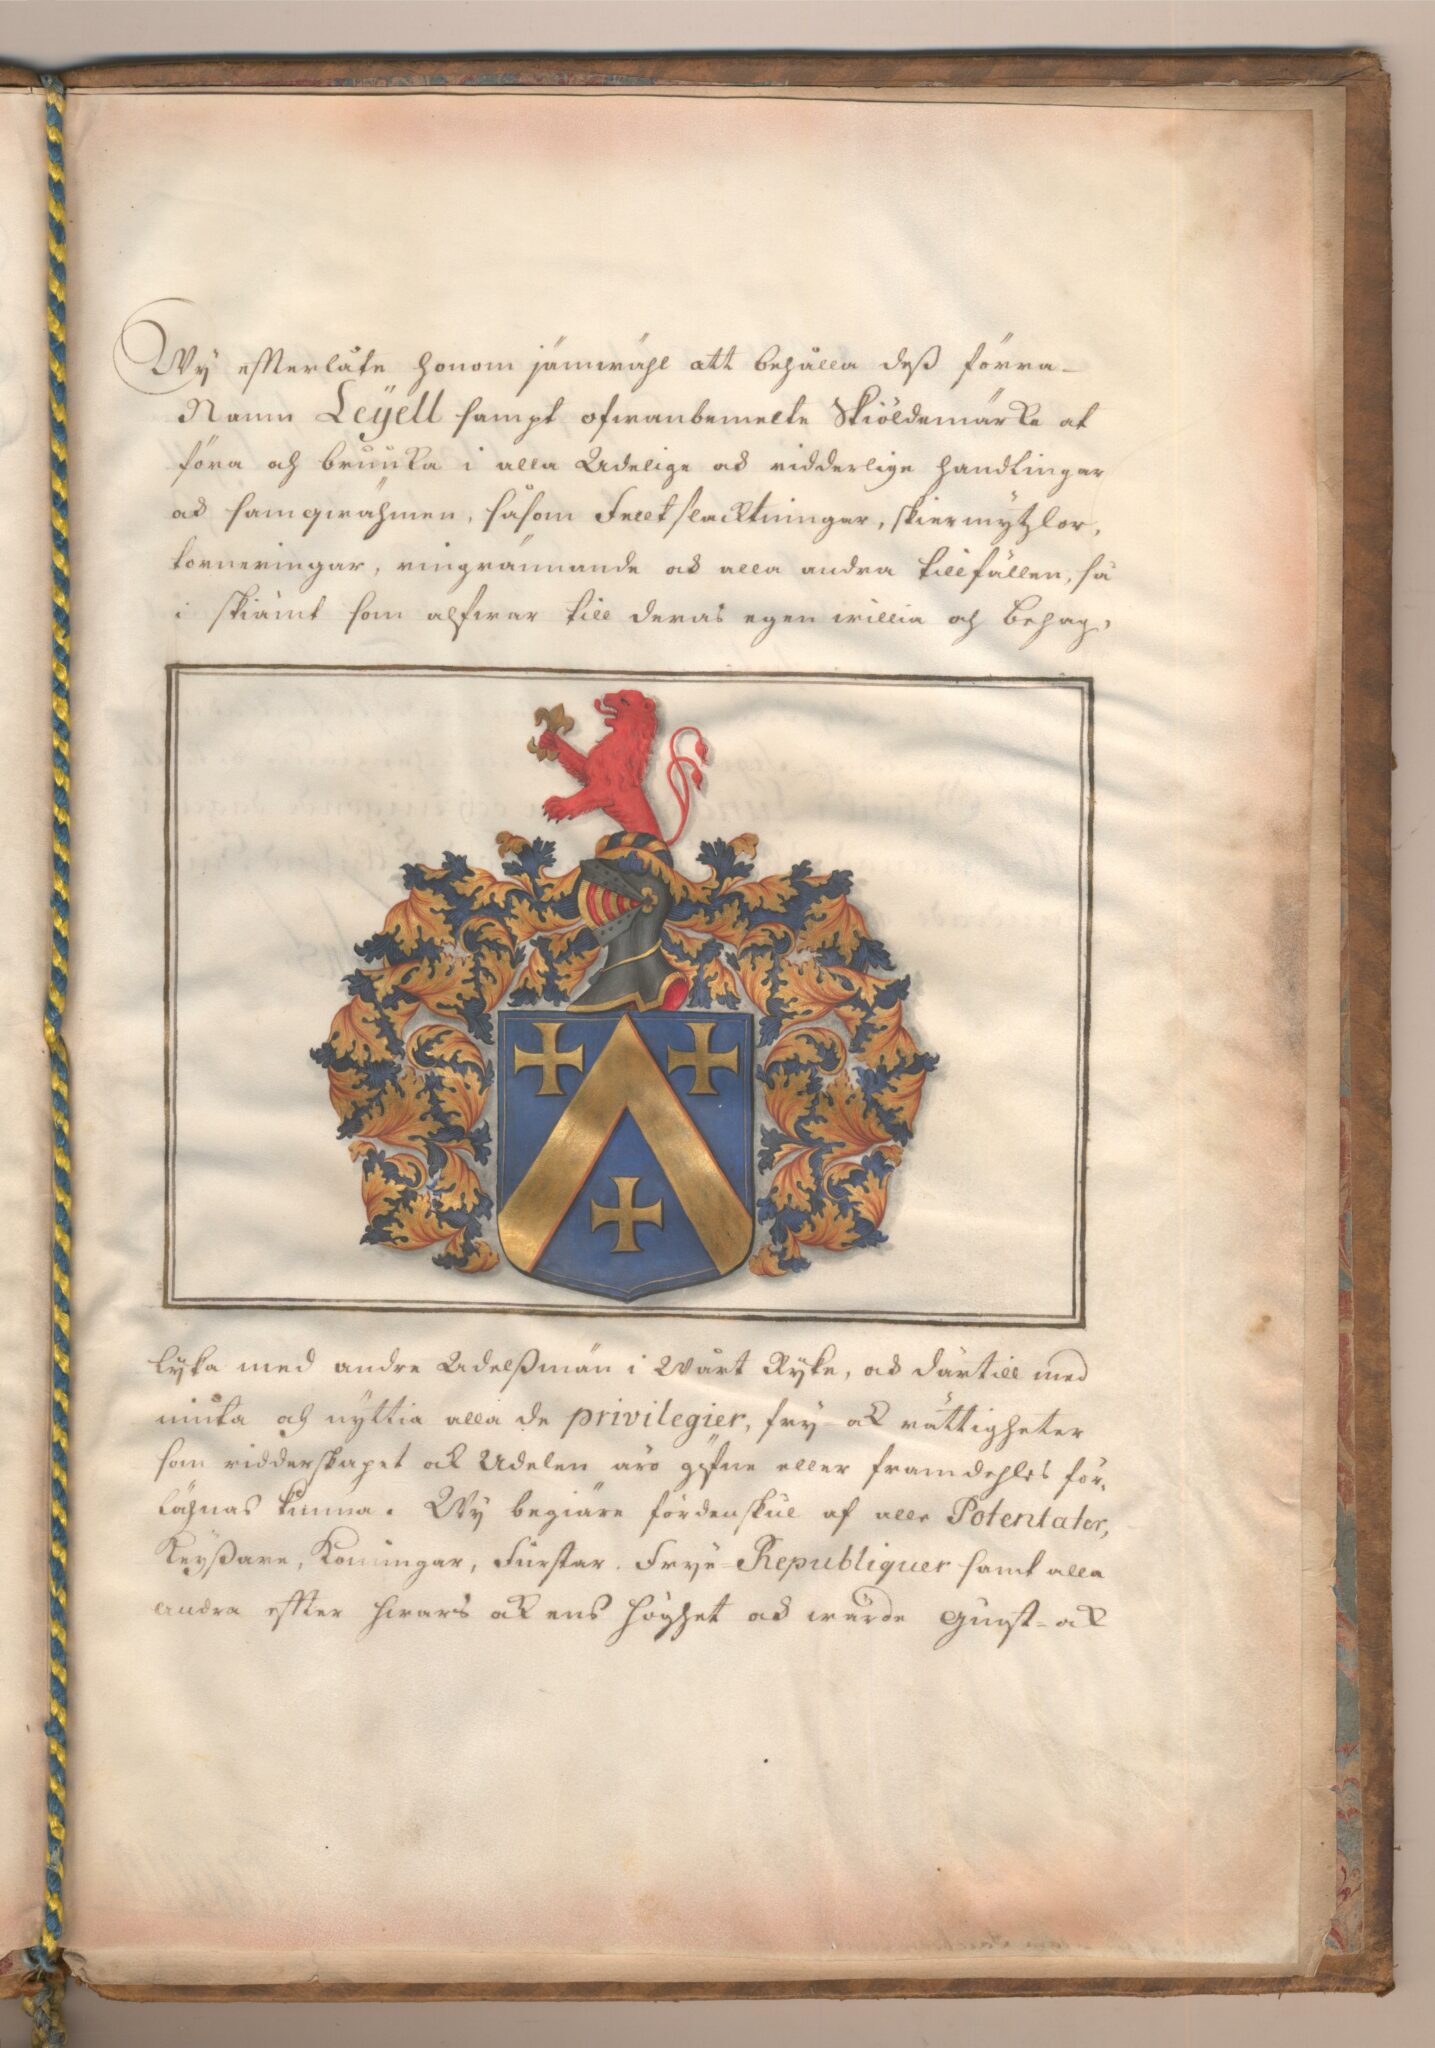 Wy effterlåte honom jämwähl att behålla deß förra
Namn Leÿell sampt ofwanbemelte Skiöldemärke at
föra och bruuka i alla Adelige ock ridderlige handlingar
ock samqwähmen, såsom Feltslacktningar, skiermÿtzlor,
torneringar, ringrännande ock alla andra tillfällen, så
i skiämt som alfwar till deras egen willia och behag,
lyka med andre Adelßmän i Wårt Ryke, ock därtill med
niuta och nyttia alla de privilegier, fry- ock rättigheter
som ridderskapet ock Adelen äro gifne eller framdehles för-
lähnas kunna. Wy begiäre fördenskul af alle Potentater,
Keyßare, Konungar, Furstar, Frye-Republiquer samt alla
andra effter hwars ock ens höghet ock wärde gunst- ock